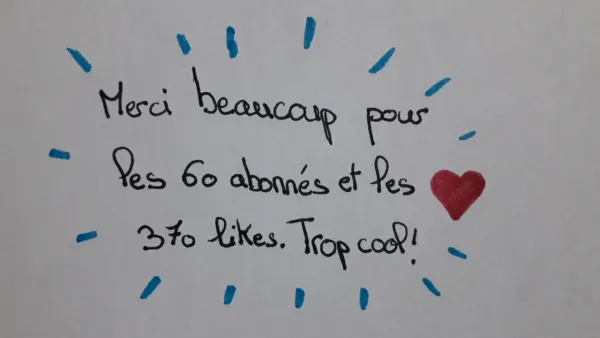 Merci beaucoup pour
les 60 abonnés et les
370 likes. Trop cool!